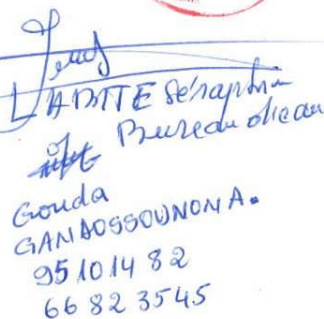 LABITE Séraphin
Bureau
Gouda
GANDOSSOUNON A.
95 10 14 82
66 82 35 45